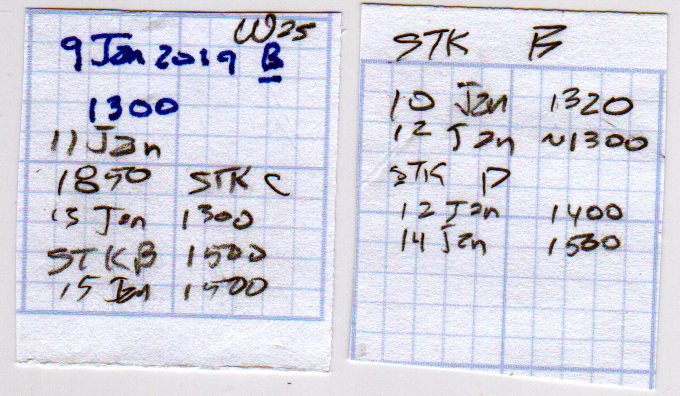 W25
9 Jan 2019 B
1300
11 Jan
1850 STK C
13 Jan 1300
STK B 1500
15 Jan 1500
STK B
10 Jan 1320
12 Jan ~1300
STK D
12 Jan 1400
14 Jan 1530